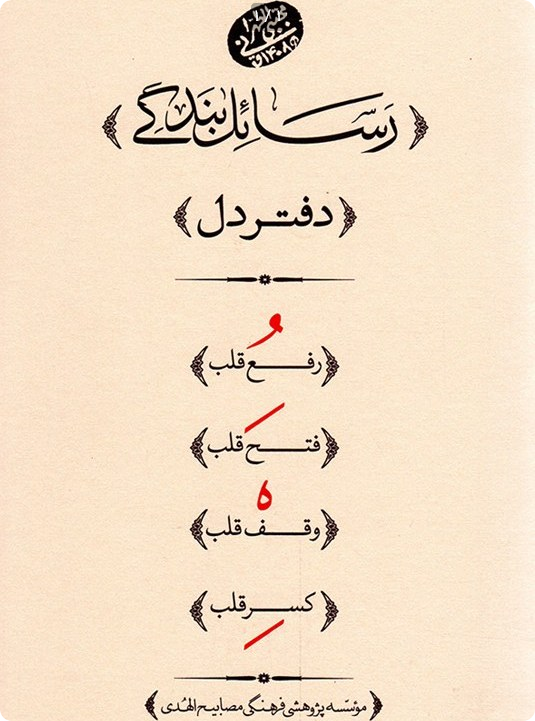 ﴿ رَسَائِل بَندِگے ﴾
﴿ دفتر دل ﴾
﴿ رفع قلب ﴾
﴿ فتح قلب ﴾
﴿ وقف قلب ﴾
﴿ کسر قلب ﴾
﴿ مؤسّسه پژوهشی فرهنگی مصابیح الهُدی ﴾